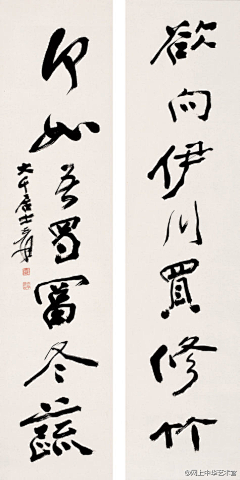 欲向伊川買修竹
如吾蜀富冬蔬
大千居士爰
@网上中华艺术